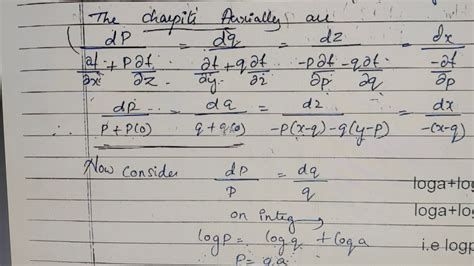 The charpits Auxially are
dP/(∂f/∂x + P ∂f/∂z) = dq/(∂f/∂y + q ∂f/∂z) = dz/(-P ∂f/∂p - q ∂f/∂q) = dx/(-∂f/∂p)
∴ dp/(P+P(0)) = dq/(q+q(0)) = dz/(-P(x-q)-q(y-P)) = dx/-(x-q)
Now Consider dP/P = dq/q
loga+log
on integ
loga+log
log P = log q + log a
i.e logp
∴ P = qa